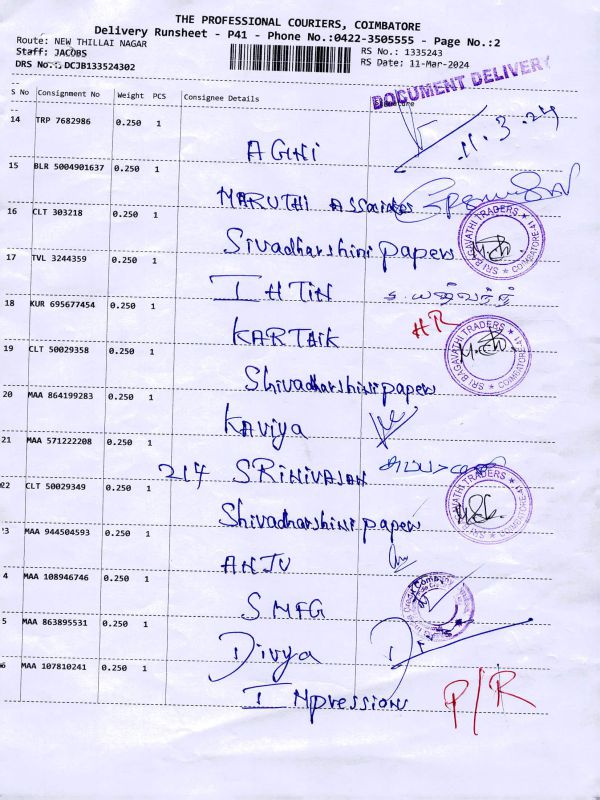 THE PROFESSIONAL COURIERS, COIMBATORE
Delivery Runsheet - P41 - Phone No.:0422-3505555 - Page No.:2
Route: NEW THILLAI NAGAR RS No.: 1335243
Staff: JACOBS RS Date: 11-Mar-2024
DRS No.: DCJB133524302
DOCUMENT DELIVERY
S No Consignment No Weight PCS Consignee Details
14 TRP 7682986 0.250 1
11.3.24
AGINI
15 BLR 5004901637 0.250 1
MARUTHI Associates
16 CLT 303218 0.250 1
Sivadharshini papers
SRI BAGAVATHI TRADERS ★ COIMBATORE-41 ★
17 TVL 3244359 0.250 1
IHTIN
18 KUR 695677454 0.250 1
HR
KARTHIK
19 CLT 50029358 0.250 1
SRI BAGAVATHI TRADERS ★ COIMBATORE-41 ★
Shivadharshini papers
20 MAA 864199283 0.250 1
Kaviya
21 MAA 571222208 0.250 1
214 SRINIVASAN
22 CLT 50029349 0.250 1
SRI BAGAVATHI TRADERS ★ COIMBATORE-41 ★
Shivadharshini papers
3 MAA 944504593 0.250 1
ANJU
4 MAA 108946746 0.250 1
SMFG
5 MAA 863895531 0.250 1
Divya
6 MAA 107810241 0.250 1
Impression
P/R